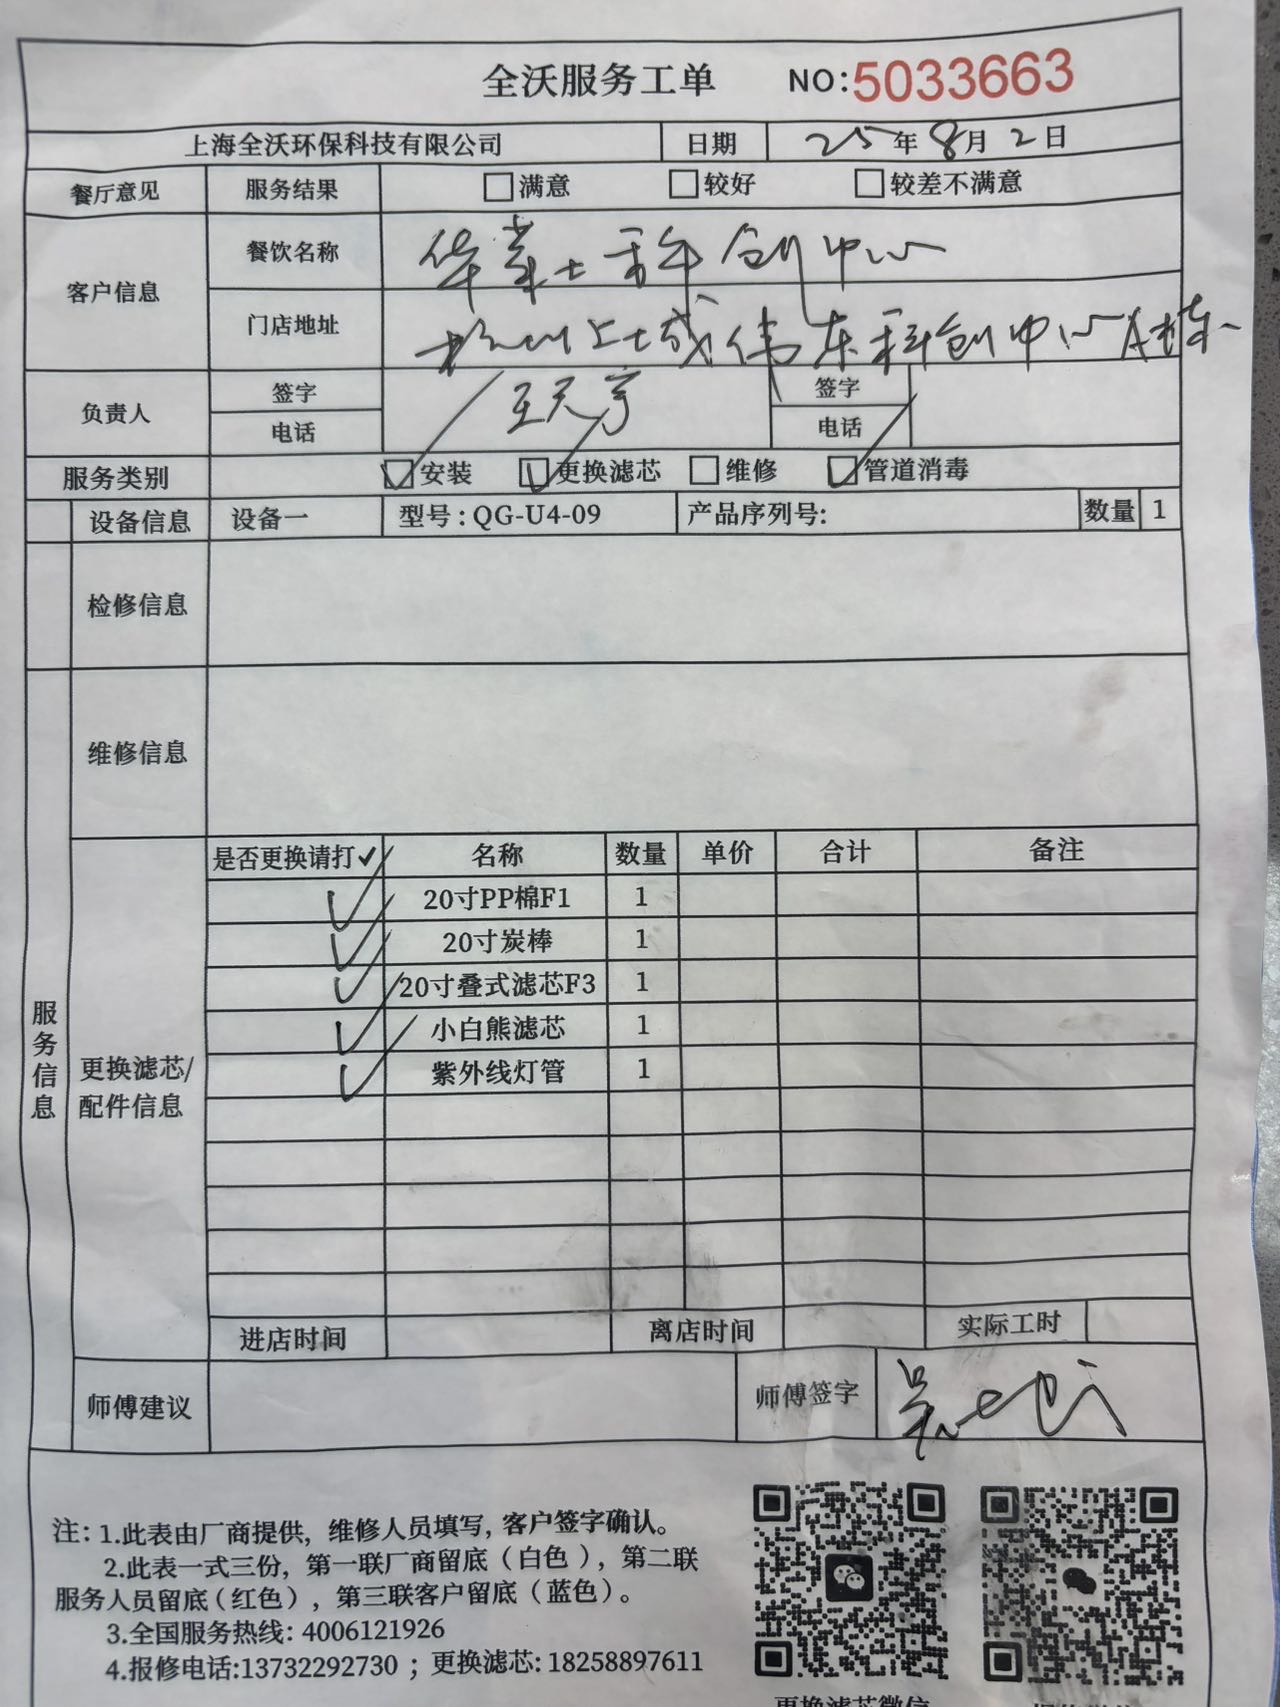 全沃服务工单 NO:5033663
上海全沃环保科技有限公司 日期 25年8月2日
餐厅意见 服务结果 满意 较好 较差不满意
客户信息 餐饮名称 华莱士科创中心
门店地址 上城伟东科创中心A栋
负责人 签字 王天宇 签字
电话 电话
服务类别 安装 更换滤芯 维修 管道消毒
设备信息 设备一 型号:QG-U4-09 产品序列号: 数量 1
检修信息
维修信息
服务信息
更换滤芯/配件信息
是否更换请打✓ 名称 数量 单价 合计 备注
✓ 20寸PP棉F1 1
✓ 20寸炭棒 1
✓ 20寸叠式滤芯F3 1
✓ 小白熊滤芯 1
✓ 紫外线灯管 1
进店时间 离店时间 实际工时
师傅建议 师傅签字 吴
注:1.此表由厂商提供,维修人员填写,客户签字确认。
2.此表一式三份,第一联厂商留底(白色),第二联
服务人员留底(红色),第三联客户留底(蓝色)。
3.全国服务热线:4006121926
4.报修电话:13732292730;更换滤芯:18258897611
更换滤芯微信